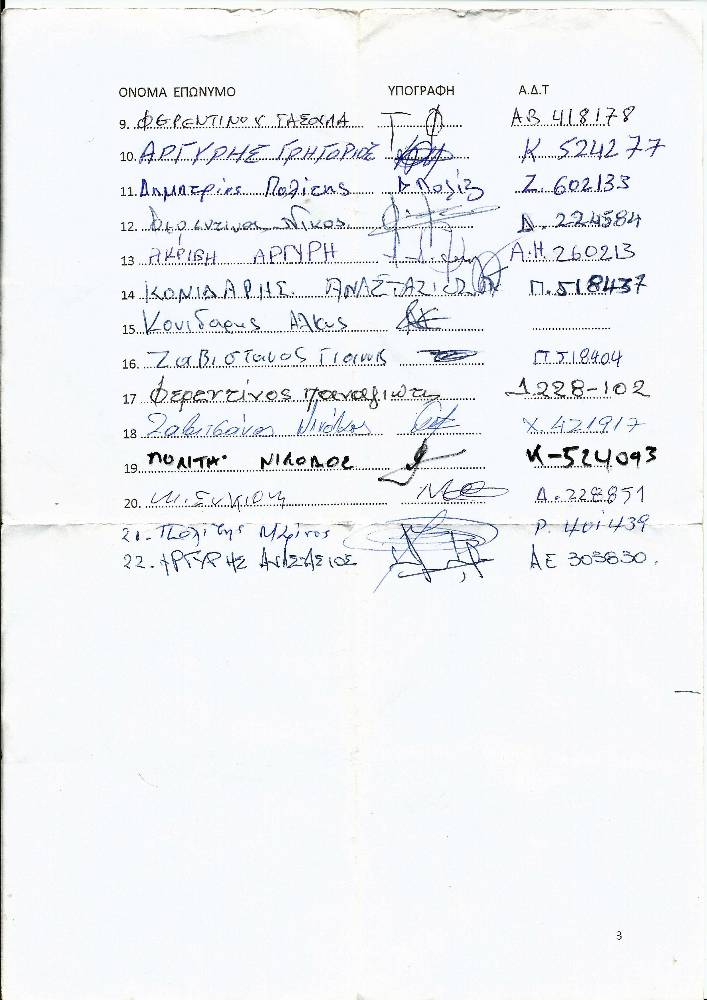 ΟΝΟΜΑ ΕΠΩΝΥΜΟ ΥΠΟΓΡΑΦΗ Α.Δ.Τ
9. ΦΕΡΕΝΤΙΝΟΥ ΤΑΣΟΥΛΑ Τ Φ ΑΒ 418178
10. ΑΡΓΥΡΗΣ ΓΡΗΓΟΡΙΟΣ Κ 524277
11. Δημητρίης Πολίτης Δ Πολίτ Ζ. 602133
12. Φερεντίνος Νίκος Δ. 224584
13 ΑΚΡΙΒΗ ΑΡΓΥΡΗ Α.Η. 260213
14 ΚΟΝΙΔΑΡΗΣ ΑΝΑΣΤΑΣΙΟΣ Π.518437
15. Κονιδαρης Αλκης
16. Ζαβιτσανος Γιαννης Π518404
17 Φερεντίνος παναγιωτ Δ228-102
18 Ζαβιτσάνος Νικόλαος Χ.421917
19. ΠΟΛΙΤΗ ΝΙΚΟΛΟΣ Κ-524093
20. Δ.228851
21. Πολίτης Μαρίνος Ρ. 401439
22. ΑΡΓΥΡΗΣ ΑΝΑΣΤΑΣΙΟΣ ΑΕ 303830.
3